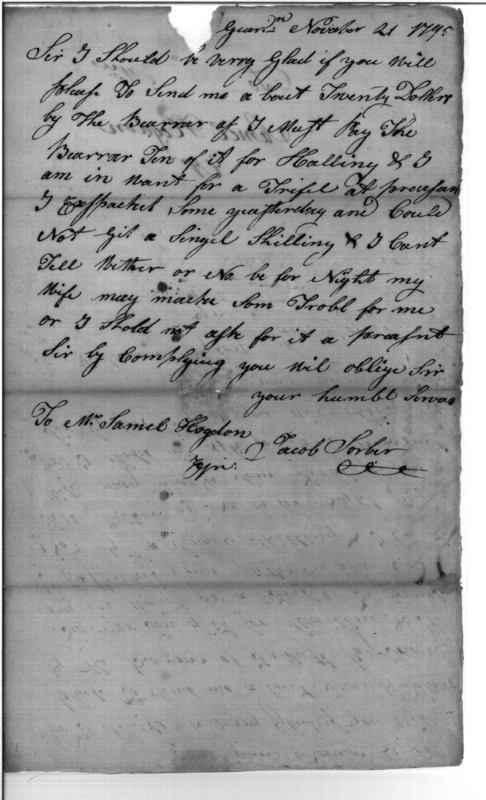 Novebor 21 179
Sir I Should be verry Glad if you will
please To Send me a bout Twenty Dollers
by The Bearrar as I Must Pay The
Bearrar Ten of it for Halling & I
am in want for a Trifel at preasan
I Exspacket Some yeasterday and Could
Not Git a Singel Shilling & I Cant
Tell Wether or No be for Night my
Wife may mache Som Trobl for me
or I Shold not ask for it a preasnt
Sir by Complying you wil oblige Sir
your humbl Serva
To Mr Samel Hogdon
Jacob Sorber